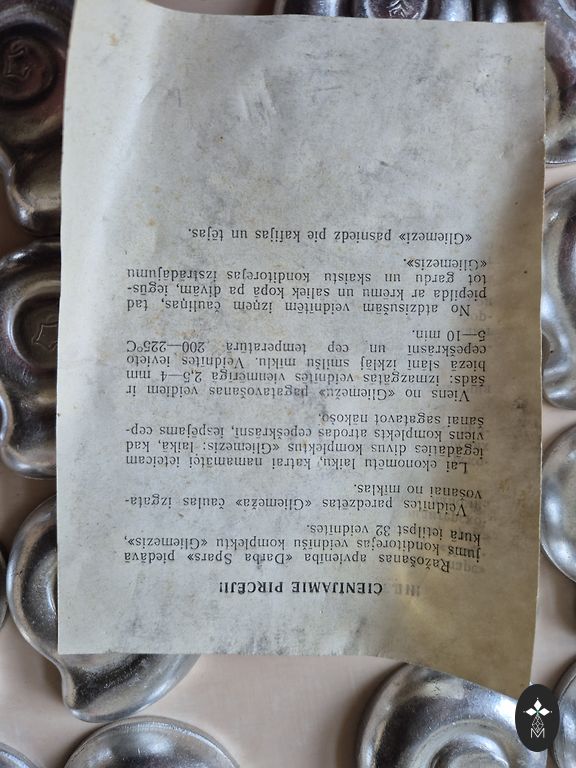 CIENĪJAMIE PIRCĒJI!
Ražošanas apvienība «Darba Spars» piedāvā
jums konditorejas veidnīšu komplektu «Gliemezis»,
kurā ietilpst 32 veidnītes.
Veidnītes paredzētas «Gliemeža» čaulas izgata-
vošanai no mīklas.
Lai ekonomētu laiku, katrai namamātei ieteicam
iegādāties divus komplektus «Gliemezis: laikā, kad
viens komplekts atrodas cepeškrāsnī, iespējams cep-
šanai sagatavot nākošo.
Viens no «Gliemežu» pagatavošanas veidiem ir
šāds: izmazgātas veidnītes vienmērīgā 2,5—4 mm
biezā slānī izklāj smilšu mīklu. Veidnītes ievieto
cepeškrāsnī un cep temperatūrā 200—225°C
5—10 min.
No atdzisušām veidnītēm izņem čauliņas, tad
piepilda ar krēmu un saliek kopā pa divām, iegūs-
tot gardu un skaistu konditorejas izstrādājumu
«Gliemezis».
«Gliemezi» pasniedz pie kafijas un tējas.
M